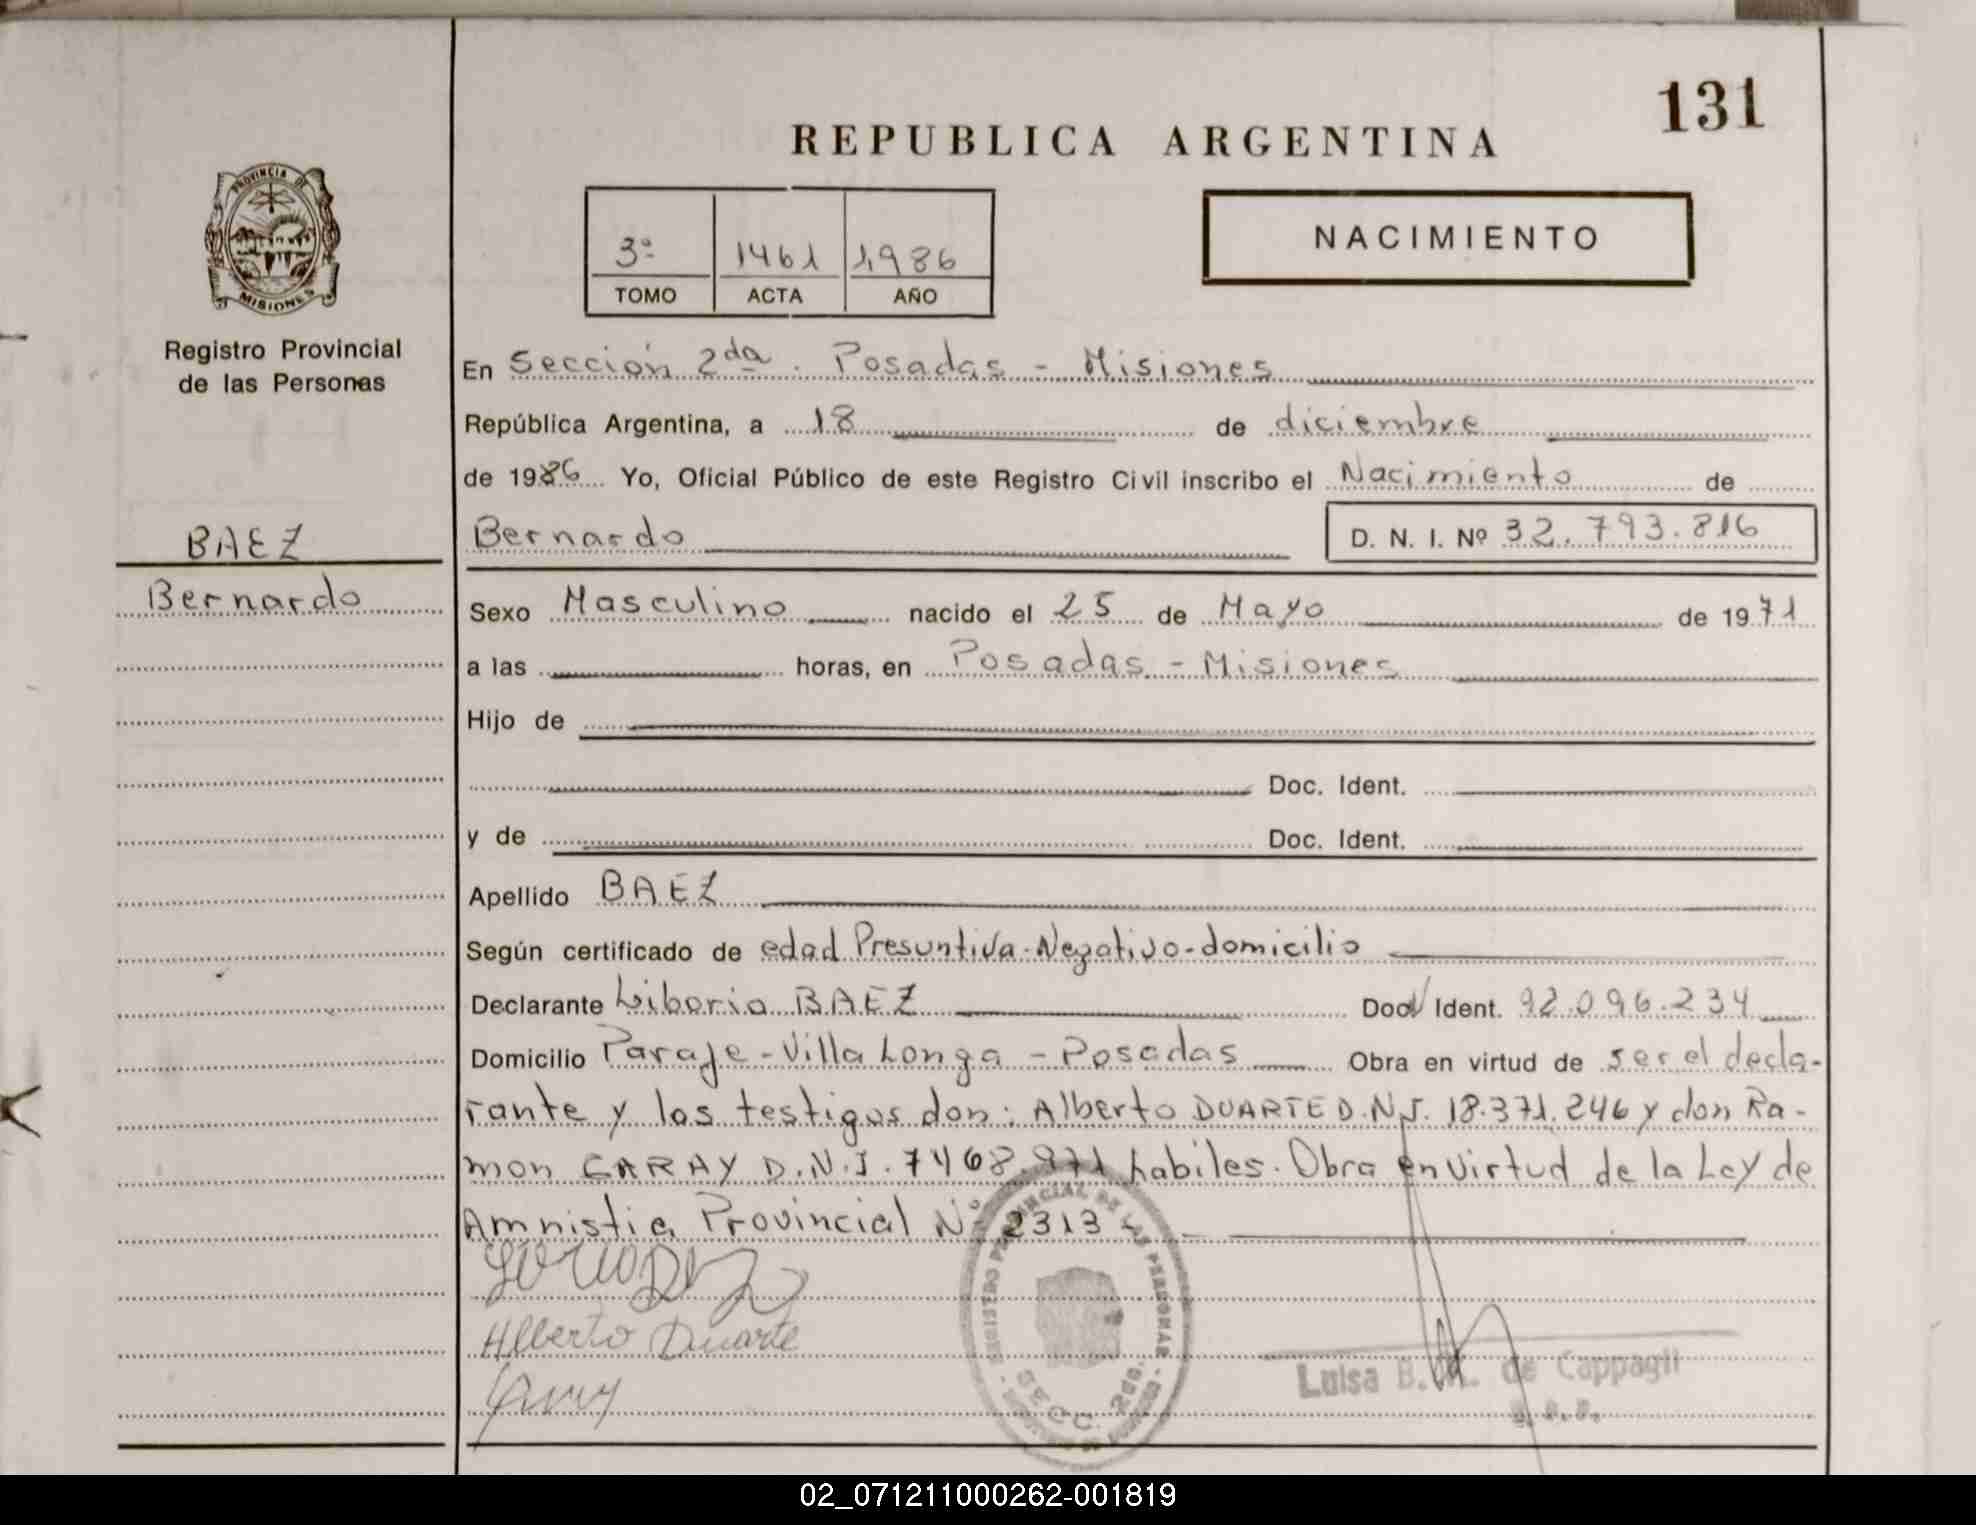 131
REPUBLICA ARGENTINA
PROVINCIA DE
MISIONES
3º 1461 1986
TOMO ACTA AÑO
NACIMIENTO
Registro Provincial
de las Personas
En Sección 2da. Posadas - Misiones
República Argentina, a 18 de diciembre
de 1986 Yo, Oficial Público de este Registro Civil inscribo el Nacimiento de
BAEZ
Bernardo
Bernardo D. N. I. Nº 32.793.816
Sexo Masculino nacido el 25 de Mayo de 1971
a las horas, en Posadas - Misiones
Hijo de
Doc. Ident.
y de Doc. Ident.
Apellido BAEZ
Según certificado de edad Presuntiva-Negativo-domicilio
Declarante Liborio BAEZ Doc. Ident. 92.096.234
Domicilio Paraje - Villa Longa - Posadas Obra en virtud de ser el decla-
rante y los testigos don: Alberto DUARTE D.N.I. 18.371.246 y don Ra-
mon GARAY D.N.I. 7468.971 habiles. Obra en virtud de la Ley de
Amnistia Provincial Nº 2313
Alberto Duarte
REGISTRO PROVINCIAL DE LAS PERSONAS
SECC. 2da.
Luisa B. M. de Cappagli
02_071211000262-001819